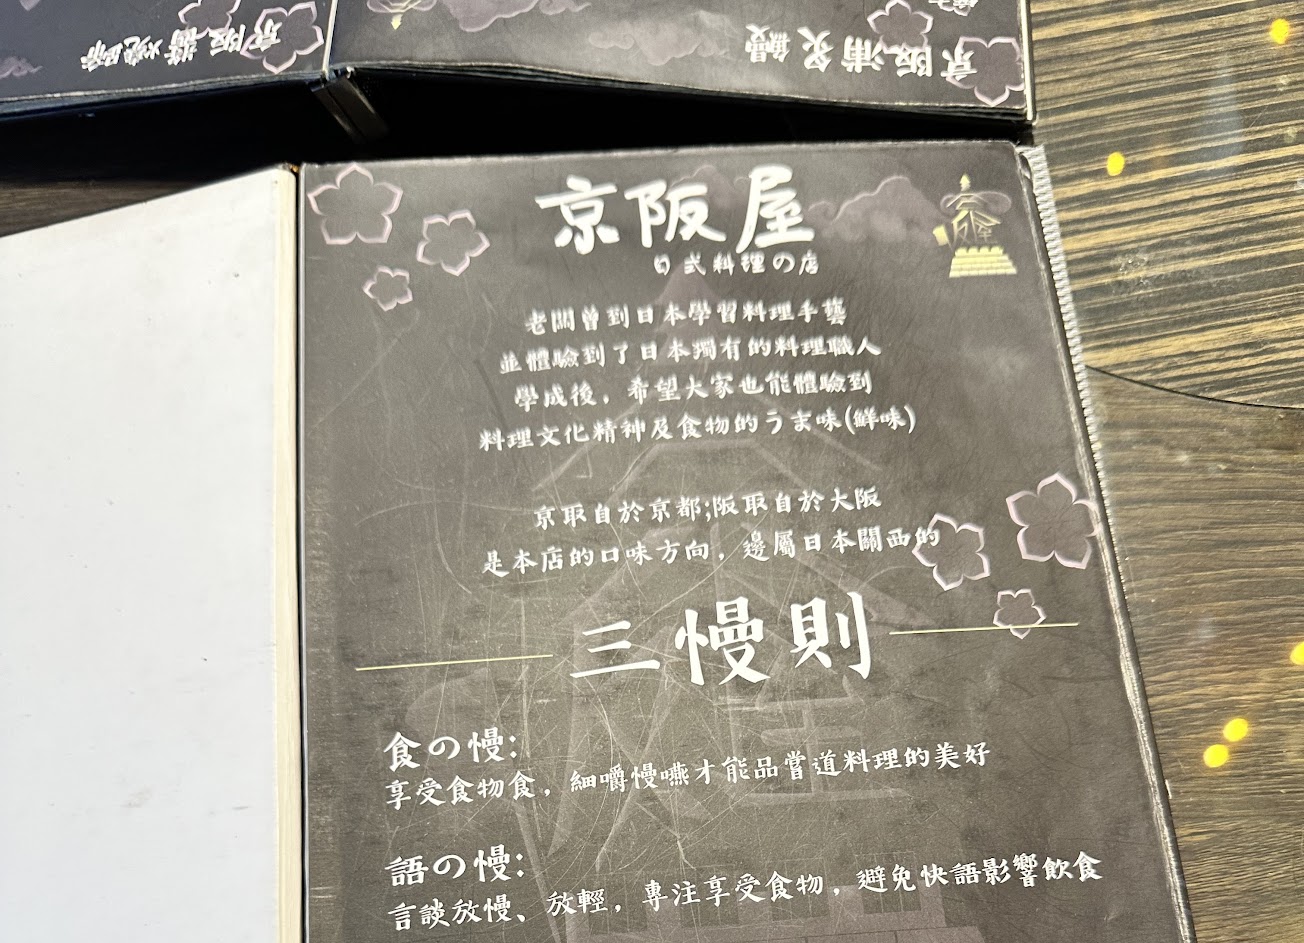 京阪醬燒歸
京阪浦炙鰻
京阪屋
日式料理の店
老闆曾到日本學習料理手藝
並體驗到了日本獨有的料理職人
學成後，希望大家也能體驗到
料理文化精神及食物的うま味(鮮味)
京取自於京都;阪取自於大阪
是本店的口味方向，邊屬日本關西的
三慢則
食の慢:
享受食物食，細嚼慢嚥才能品嘗道料理的美好
語の慢:
言談放慢、放輕，專注享受食物，避免快語影響飲食